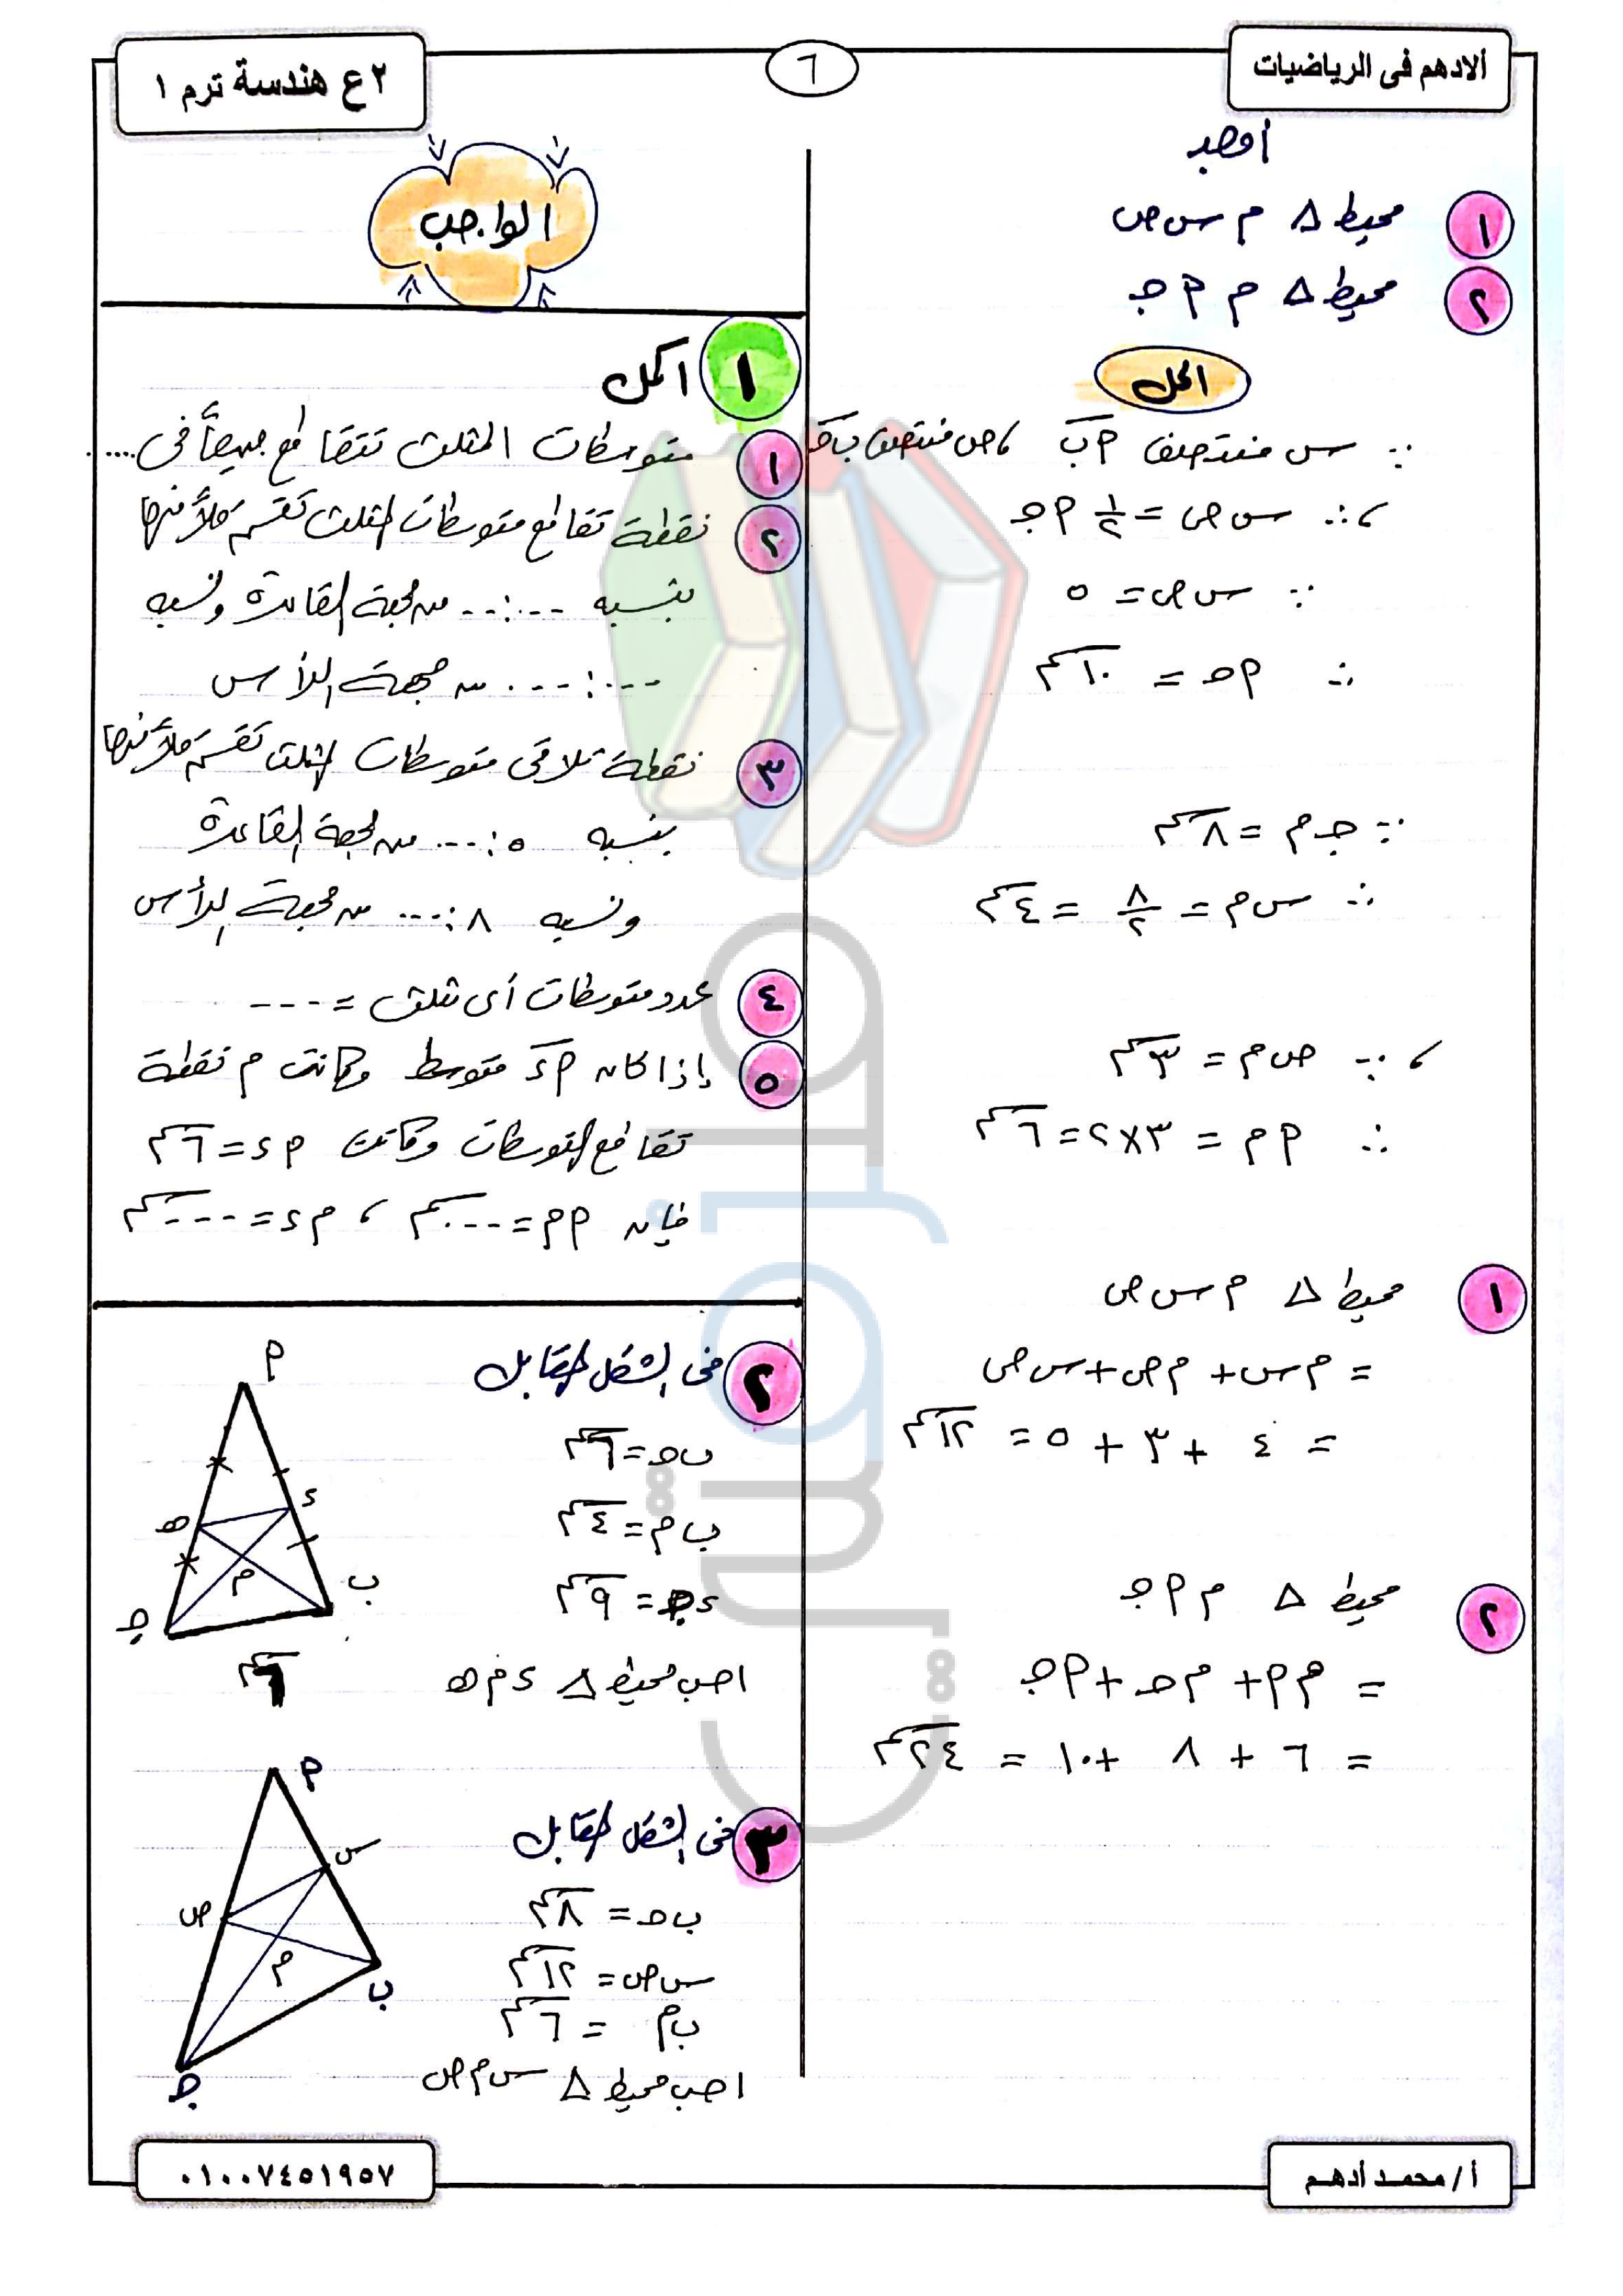 ألادهم فى الرياضيات
٦
٢ع هندسة ترم ١
أوجد
١ محيط Δ م س ص
٢ محيط Δ م أ جـ
الحل
∵ س منتصف أب ، ص منتصف ب جـ
، ∴ س ص = ١/٢ أ جـ
∵ س ص = ٥
∴ أ جـ = ١٠ سم
∵ جـ م = ٨ سم
∴ س م = ٨/٢ = ٤ سم
، ∵ ص م = ٣ سم
∴ أ م = ٣ × ٢ = ٦ سم
١ محيط Δ م س ص
= م س + م ص + س ص
= ٤ + ٣ + ٥ = ١٢ سم
٢ محيط Δ م أ جـ
= م أ + م جـ + أ جـ
= ٦ + ٨ + ١٠ = ٢٤ سم
الواجب
١ اكمل
١ متوسطات المثلث تتقاطع جميعاً فى ....
٢ نقطة تقاطع متوسطات المثلث تقسم كلاً منها
بنسبه ...:... من جهة القاعدة ونسبه
...:... من جهة الرأس
٣ نقطة تلاقى متوسطات المثلث تقسم كلاً منها
بنسبه ٥:... من جهة القاعدة
ونسبه ٨:... من جهة الرأس
٤ عدد متوسطات أى مثلث = ---
٥ إذا كان أ د متوسط وكانت م نقطة
تقاطع المتوسطات وكانت أ د = ٦ سم
فإن أ م = --- سم ، م د = --- سم
٢ فى الشكل المقابل
ب جـ = ٦ سم
ب م = ٤ سم
د جـ = ٩ سم
احسب محيط Δ د م هـ
أ
د
هـ
م
ب
جـ
٦ سم
٣ فى الشكل المقابل
ب جـ = ٨ سم
س ص = ١٢ سم
ب م = ٦ سم
احسب محيط Δ س م ص
أ
س
ص
م
ب
جـ
أ/محمد أدهم
٠١٠٠٧٤٥١٩٥٧